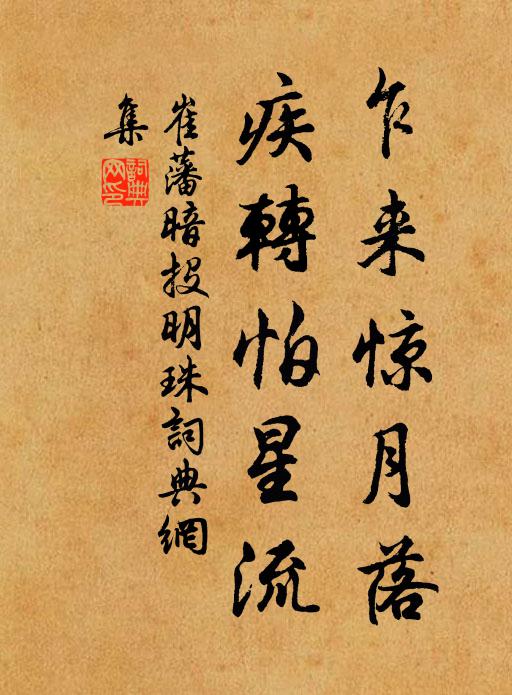 乍来惊月落
疾轉怕星流
崔藩暗投明珠詞典網
集
詞典网印